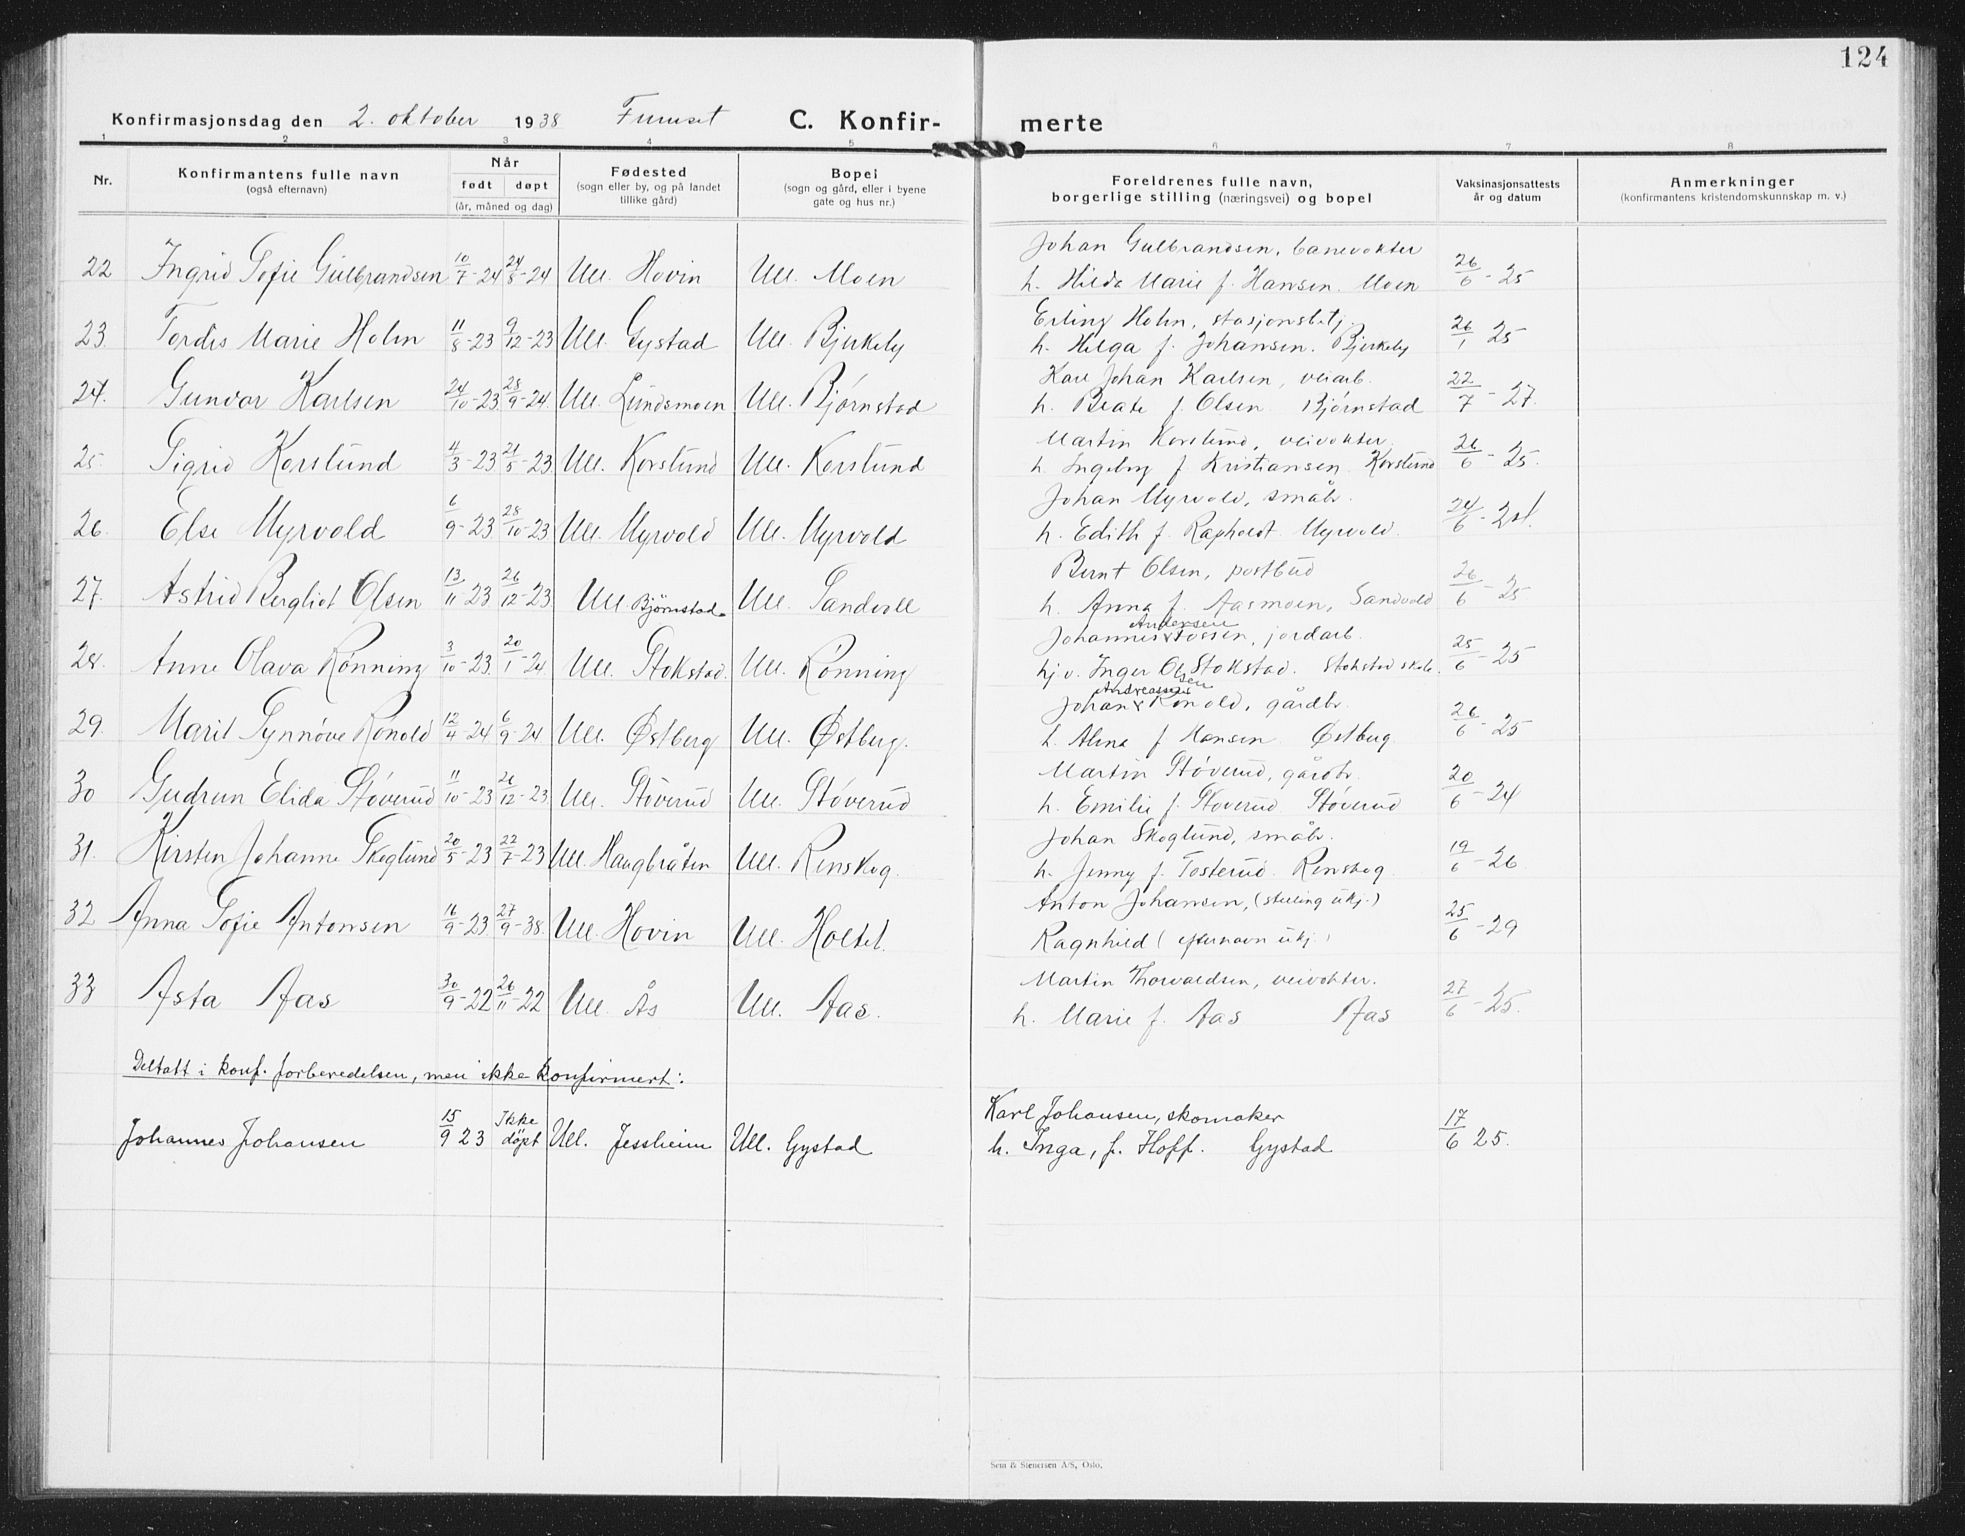 124
Konfirmasjonsdag den 2. oktober 1938 Furuset C. Konfir- merte
1 2 3 4 5 6 7 8
Nr. Konfirmantens fulle navn (også efternavn) Når født døpt (år, måned og dag) Fødested (sogn eller by, og på landet tillike gård) Bopel (sogn og gård, eller i byene gate og hus nr.) Foreldrenes fulle navn, borgerlige stilling (næringsvei) og bopel Vaksinasjonsattests år og datum Anmerkninger (konfirmantens kristendomskunnskap m. v.)
22 Ingrid Sofie Gulbrandsen 10/7-24 24/8-24 Ull. Hovin Ull. Moen Johan Gulbrandsen, banevokter
h. Hilda Marie f. Hansen. Moen 26/6-25
23. Tordis Marie Holm 11/8-23 9/12-23 Ull. Gystad Ull. Bjerkeby Erling Holm, stasjonsbetj.
h. Helga f. Johansen. Bjerkeby 26/1 25
24. Gunvor Karlsen 24/10-23 28/9-24. Ull. Lundsmoen Ull. Bjørnstad Karl Johan Karlsen, veiarb.
h. Beate f. Olsen Bjørnstad 22/7-27.
25. Sigrid Korslund 4/3-23 21/5-23 Ull. Korslund Ull. Korslund Martin Korslund, veivokter.
h. Ingeborg f. Kristiansen Korslund 26/6-25.
26. Else Myrvold 6/9-23 28/10-23 Ull. Myrvold Ull. Myrvold Johan Myrvold, småbr.
h. Edith f. Rapholdt Myrvold. 24/6-24.
27. Astrid Bergliot Olsen 13/11-23 26/12-23 Ull. Bjørnstad Ull. Sandvoll Bernt Olsen, postbud
h. Anna f. Aasmoen, Sandvold 26/6-25
28. Anne Olava Rønning 3/10-23. 20/1-24 Ull. Stokstad. Ull. Rønning Johannes Andersen Fossen, jordarb.
hj.v. Inger Olsen Stokstad. Stokstad skole. 25/6-25
29. Marit Synnøve Rønold 12/4-24 6/9-24 Ull. Østberg Ull. Østberg. Johan Andreassen Rønold, gårdbr.
h. Alma f Hansen Østberg 26/6-25
30 Gudrun Elida Støverud 11/10-23 26/12-23 Ull. Støverud Ull. Støverud Martin Støverud, gårdbr.
h. Emilie f. Støverud Støverud 20/6-24
31. Kirsten Johanne Skoglund 20/5-23 22/7-23 Ull. Haugbråten Ull. Renskog. Johan Skoglund, småbr.
h. Jenny f. Tosterud. Renskog 19/6-26
32 Anna Sofie Antonsen 16/9-23 27/9-38. Ull. Hovin Ull. Holtet. Anton Johansen, (stilling ukj.)
Ragnhild (efternavn ukj.) 25/6-29
33 Asta Aas 30/9-22 26/11-22 Ull. Ås Ull. Aas. Martin Thorvaldsen, veivokter.
h. Marie f. Aas Aas 27/6-25.
Deltatt i konf. forberedelsen, men ikke konfirmert:
Johannes Johansen 15/9 23 Ikke døpt Ull. Jessheim Ull. Gystad Karl Johansen, skomaker
h. Inga, f. Hoff. Gystad 17/6 25.
Sem & Stenersen A/S, Oslo.